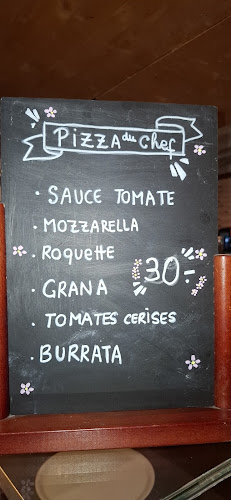 PIZZA du Chef
• SAUCE TOMATE
• MOZZARELLA
• Roquette
30
• GRANA
• TOMATES CERISES
• BURRATA